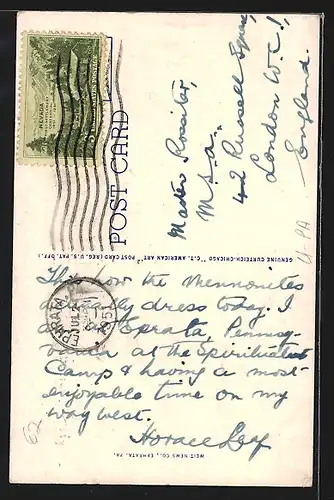 NEVADA
UNITED STATES POSTAGE
POST CARD
Master Rossiter,
M.S.A.
42 Russell Square,
London W.C.1,
England.
U-PA
GENUINE CURTEICH-CHICAGO "C.T. AMERICAN ART" POST CARD (REG. U.S. PAT. OFF.)
This how the Mennonites
actually dress today. I
am at Ephrata, Pennsyl-
vania at the Spiritualist
Camp & having a most
enjoyable time on my
way west.
Horace Leaf
EPHRATA
AUG
1951
WEIT NEWS CO., EPHRATA, PA.
62